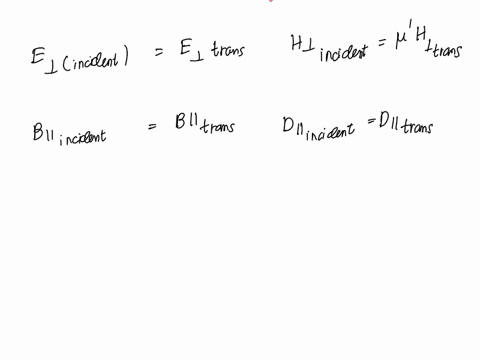 E⊥(incident) = E⊥ trans H⊥ incident = μ' H⊥ trans
B|| incident = B|| trans D|| incident = D|| trans